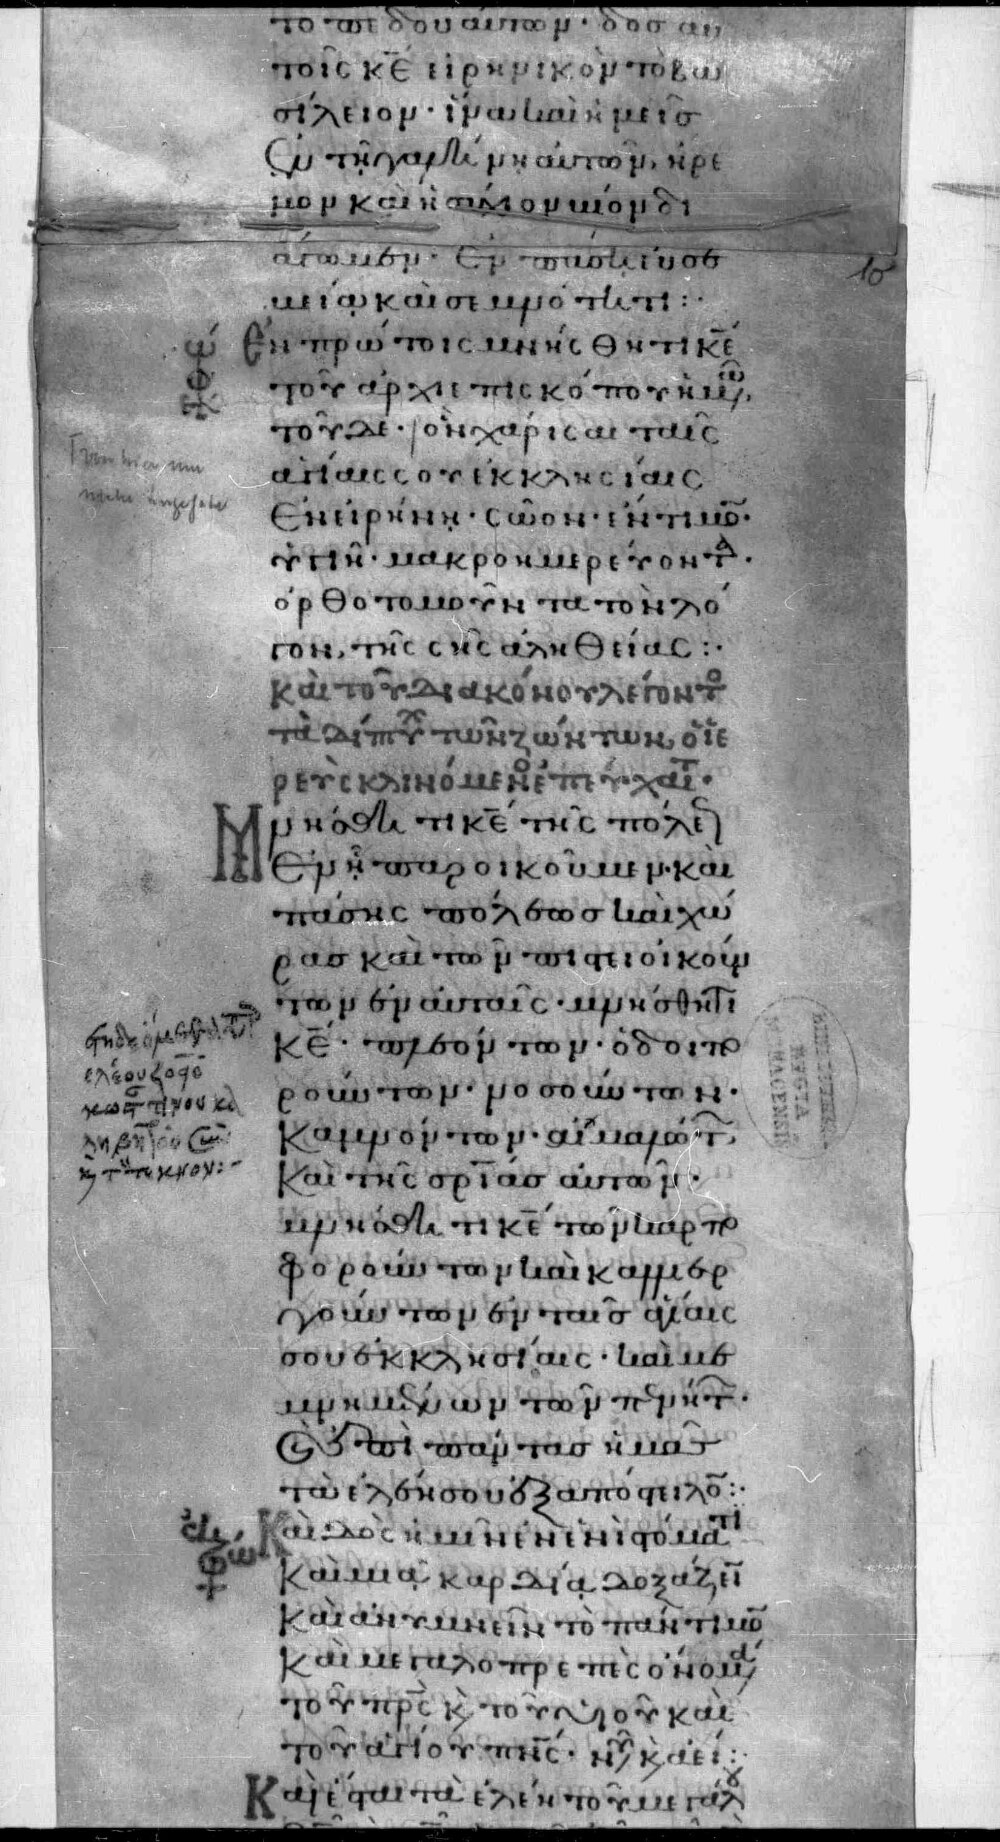 το πεδον αυτῶν· δὸς αυ
τοῖς κε̅ εἰρηνικὸν το βα
σίλειον· ἵνα καὶ ἡμεῖς
ἐν τῆ γαλήνη αὐτῶν, ἤρε
μον καὶ ἡσύχιον βίον δι
άγωμεν· Ἐν πάση εὐσε
βεία καὶ σεμνότητι :·
Ἐν πρώτοις μνήσθητι κε̅
τοῦ ἀρχιεπισκόπου ἡμῶ
τοῦδε· ὃν χάρισαι ταῖς
ἁγίαις σου ἐκκλησίαις
Ἐν εἰρήνη· σῶον· ἔντιμο·
ὑγιῆ· μακροημερεύοντα·
ὀρθοτομοῦντα τὸν λό
γον, τῆς σῆς ἀληθείας :·
Καὶ τοῦ διακόνου λέγοντο
τὰ δίπτυχα τῶν ζώντων, ὁ ἱε
ρεὺς κλινόμενο ἐπεύχεται·
Μνήσθητι κε̅ τῆς πόλεως
Ἐν ἧ παροικοῦμεν· καὶ
πάσης πόλεως καὶ χώ
ρας καὶ τῶν πίστει οἰκούν
των ἐν αὐταῖς· μνήσθητι
κε̅· πλεόντων· ὁδοιπο
ρούντων· νοσούντων·
Καμνόντων· αἰχμαλώτ
Καὶ τῆς σρίας αὐτῶν·
μνήσθητι κε̅ τῶν καρπο
φορούντων καὶ καλλιερ
γούντων ἐν ταῖς ἁγίαις
σου ἐκκλησίαις· καὶ με
μνημένων τῶν πενήτ·
Καὶ ἐπὶ πάντας ἡμᾶς
τὰ ἐλέη σου ἐξαπόστειλο :·
Καὶ δὸς ἡμῖν ἐν ἑνὶ στόματι
Καὶ μιᾶ καρδία δοξάζειν
Καὶ ἀνυμνεῖν τὸ πάντιμο
Καὶ μεγαλοπρεπὲς ὄνομα
τοῦ πρς̅ κ τοῦ υἱοῦ καὶ
τοῦ ἁγίου πνς̅· νῦν κ ἀεί :·
Καὶ ἔσται τὰ ἐλέη τοῦ μεγάλου